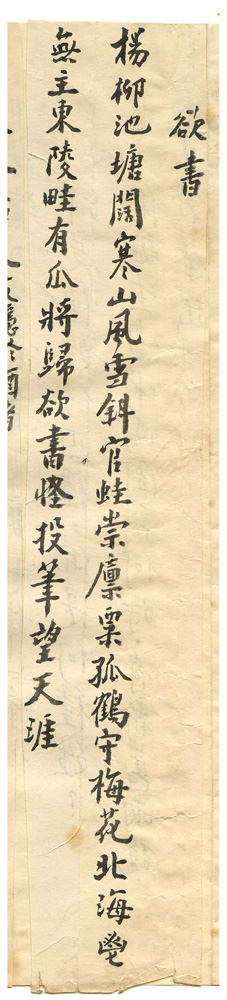 欲書
楊柳池塘闊寒山風雪斜官蛙崇廩粟孤鶴守梅花北海
無主東陵畦有瓜將歸欲書怪投筆望天涯